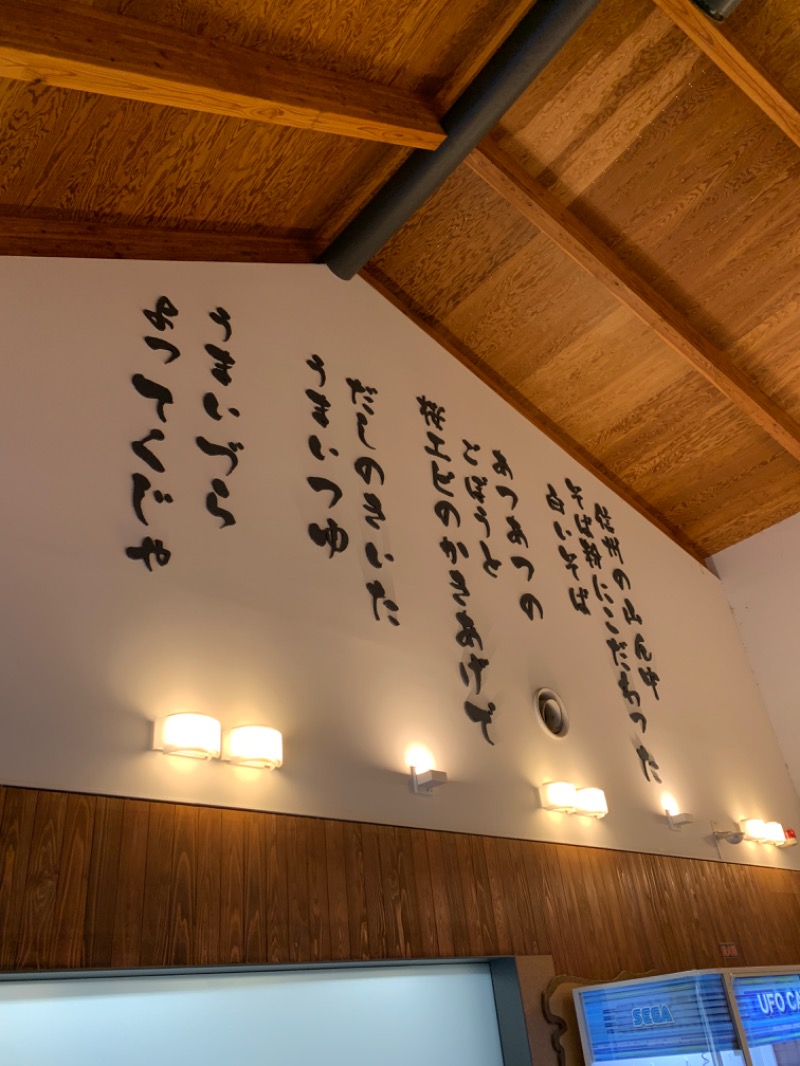 信州の山ん中
そば粉にこだわった
白いそば
あつあつの
桜エビのかきあげで
だしのきいた
うまいつゆ
うまいづら
SEGA
UFO CA